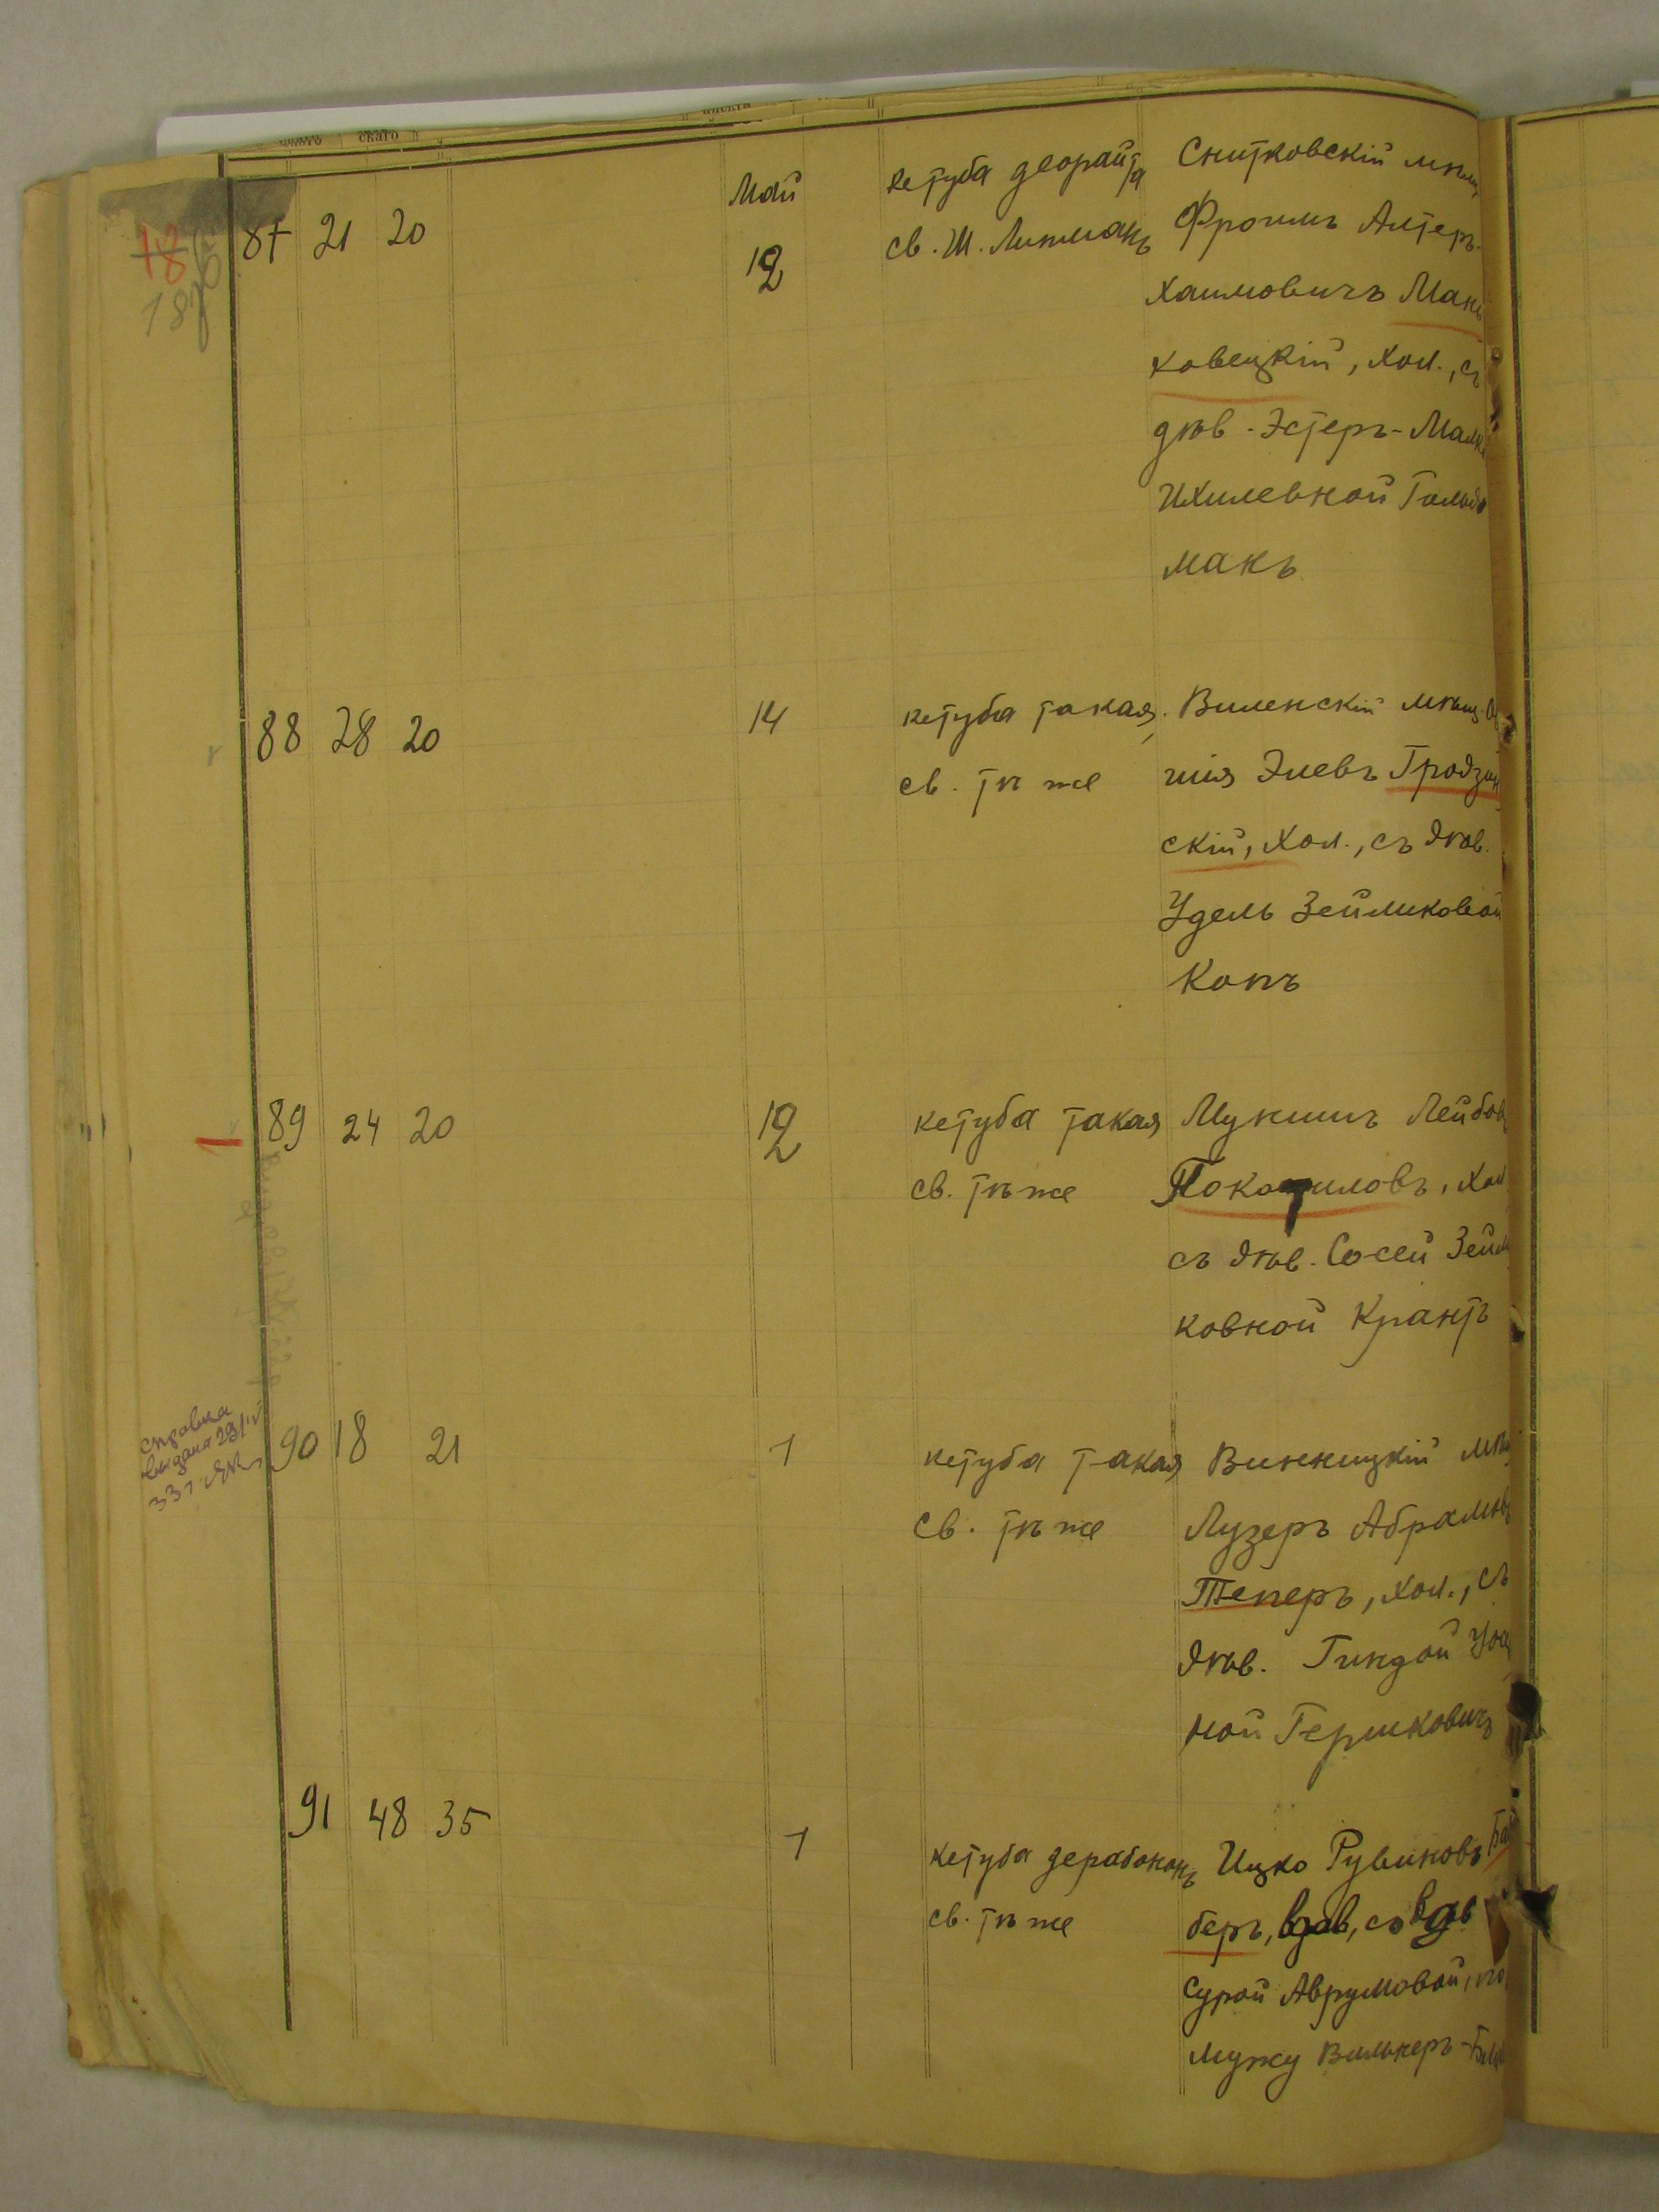 скаго
87 21 20 Май 12 кетуба деорайта
св. Ш. Литманъ
Снитковскій мѣщ
Фроимъ Алтеръ-
Хаимовичъ Мань
ковецкій, хол., съ
дѣв. Эстеръ-Малк
Ихилевной Гольд
макъ
88 28 20 14 кетуба такая,
св. тѣ же
Виленскій мѣщ.
шія Элевъ Гродзин
скій, хол., съ дѣв.
Удель Зейликовой
Копъ
89 24 20 12 кетуба такая
св. тѣ же
Мукшиъ Лейбов
Покотиловъ, хол
съ дѣв. Сосей Зейл
ковной Крантъ
справка
выдана 29/IV
331
90 18 21 1 кетуба такая
св. тѣ же
Винницкій мѣщ
Лузеръ Абрамов
Теперъ, хол., съ
дѣв. Гиндой
ной Гершковичъ
91 48 35 1 кетуба дерабононъ
св. тѣ же
Ицко Рувиновъ
беръ, вдов, съ вдов
Сурой Аврумовой, по
мужу Вилькеръ-